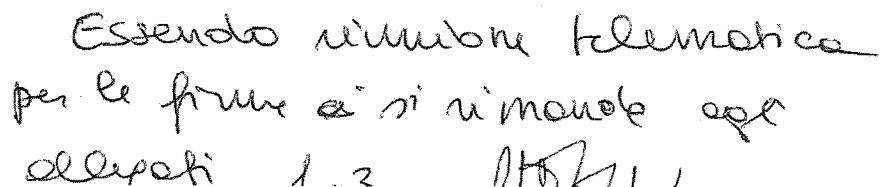 Essendo riunione telematica
per le firme ci si rimanda agli
allegati 1-3